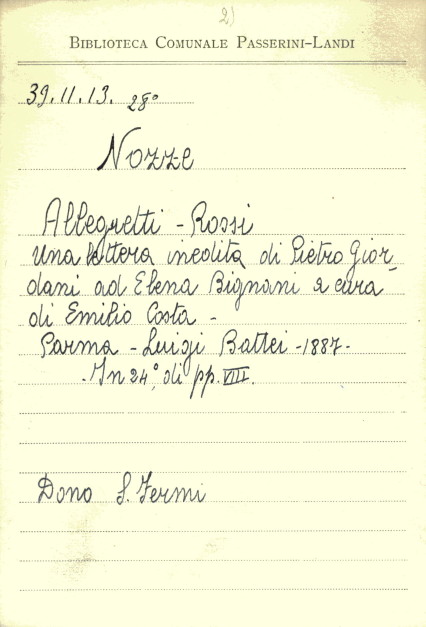 2)
BIBLIOTECA COMUNALE PASSERINI-LANDI
39.11.13. 28°
Nozze
Allegretti - Rossi
Una lettera inedita di Pietro Gior_
dani ad Elena Bignani a cura
di Emilio Costa -
Parma - Luigi Battei - 1887-
- In 24°, di pp. VIII.
Dono S. Fermi